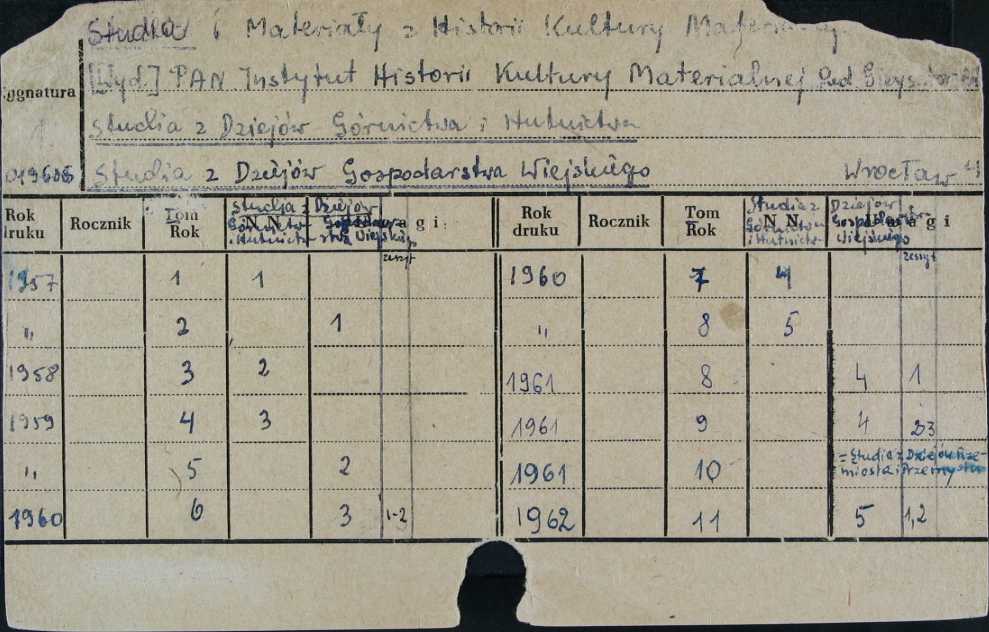 Studia i Materiały z Historii Kultury Materialnej
[Wyd.] PAN Instytut Historii Kultury Materialnej Red
Sygnatura
Studia z Dziejów Górnictwa i Hutnictwa
Studia z Dziejów Gospodarstwa Wiejskiego Wrocław
Rok druku Rocznik Tom Rok Studia z Dziejów Górnictwa i Hutnictw N N. Gospodarstwa Wiejskiego U w a g i: zeszyt Rok druku Rocznik Tom Rok Studia z Górnictwa i Hutnictw N N. Dziejów Gospodarstw Wiejskiego U w a g i zeszyt
1957 1 1 1960 7 4
„ 2 1 „ 8 5
1958 3 2 1961 8 4 1
1959 4 3 1961 9 4 23
„ 5 2 1961 10 = Studia z Dziejów Rze-
miosła i Przemysłu
1960 6 3 1-2 1962 11 5 1,2